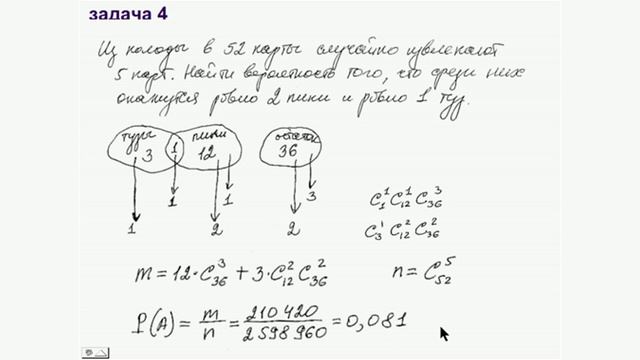 задача 4
Из колоды в 52 карты случайно извлекают
5 карт. Найти вероятность того, что среди них
окажутся ровно 2 пики и ровно 1 туз.
тузы пики остальн
3 1 12 36
1 1 3
1 2 2
C₁¹C₁₂¹C₃₆³
C₃¹C₁₂²C₃₆²
m = 12·C₃₆³ + 3·C₁₂²C₃₆² n = C₅₂⁵
P(A) = m/n = 210 420/2 598 960 = 0,081